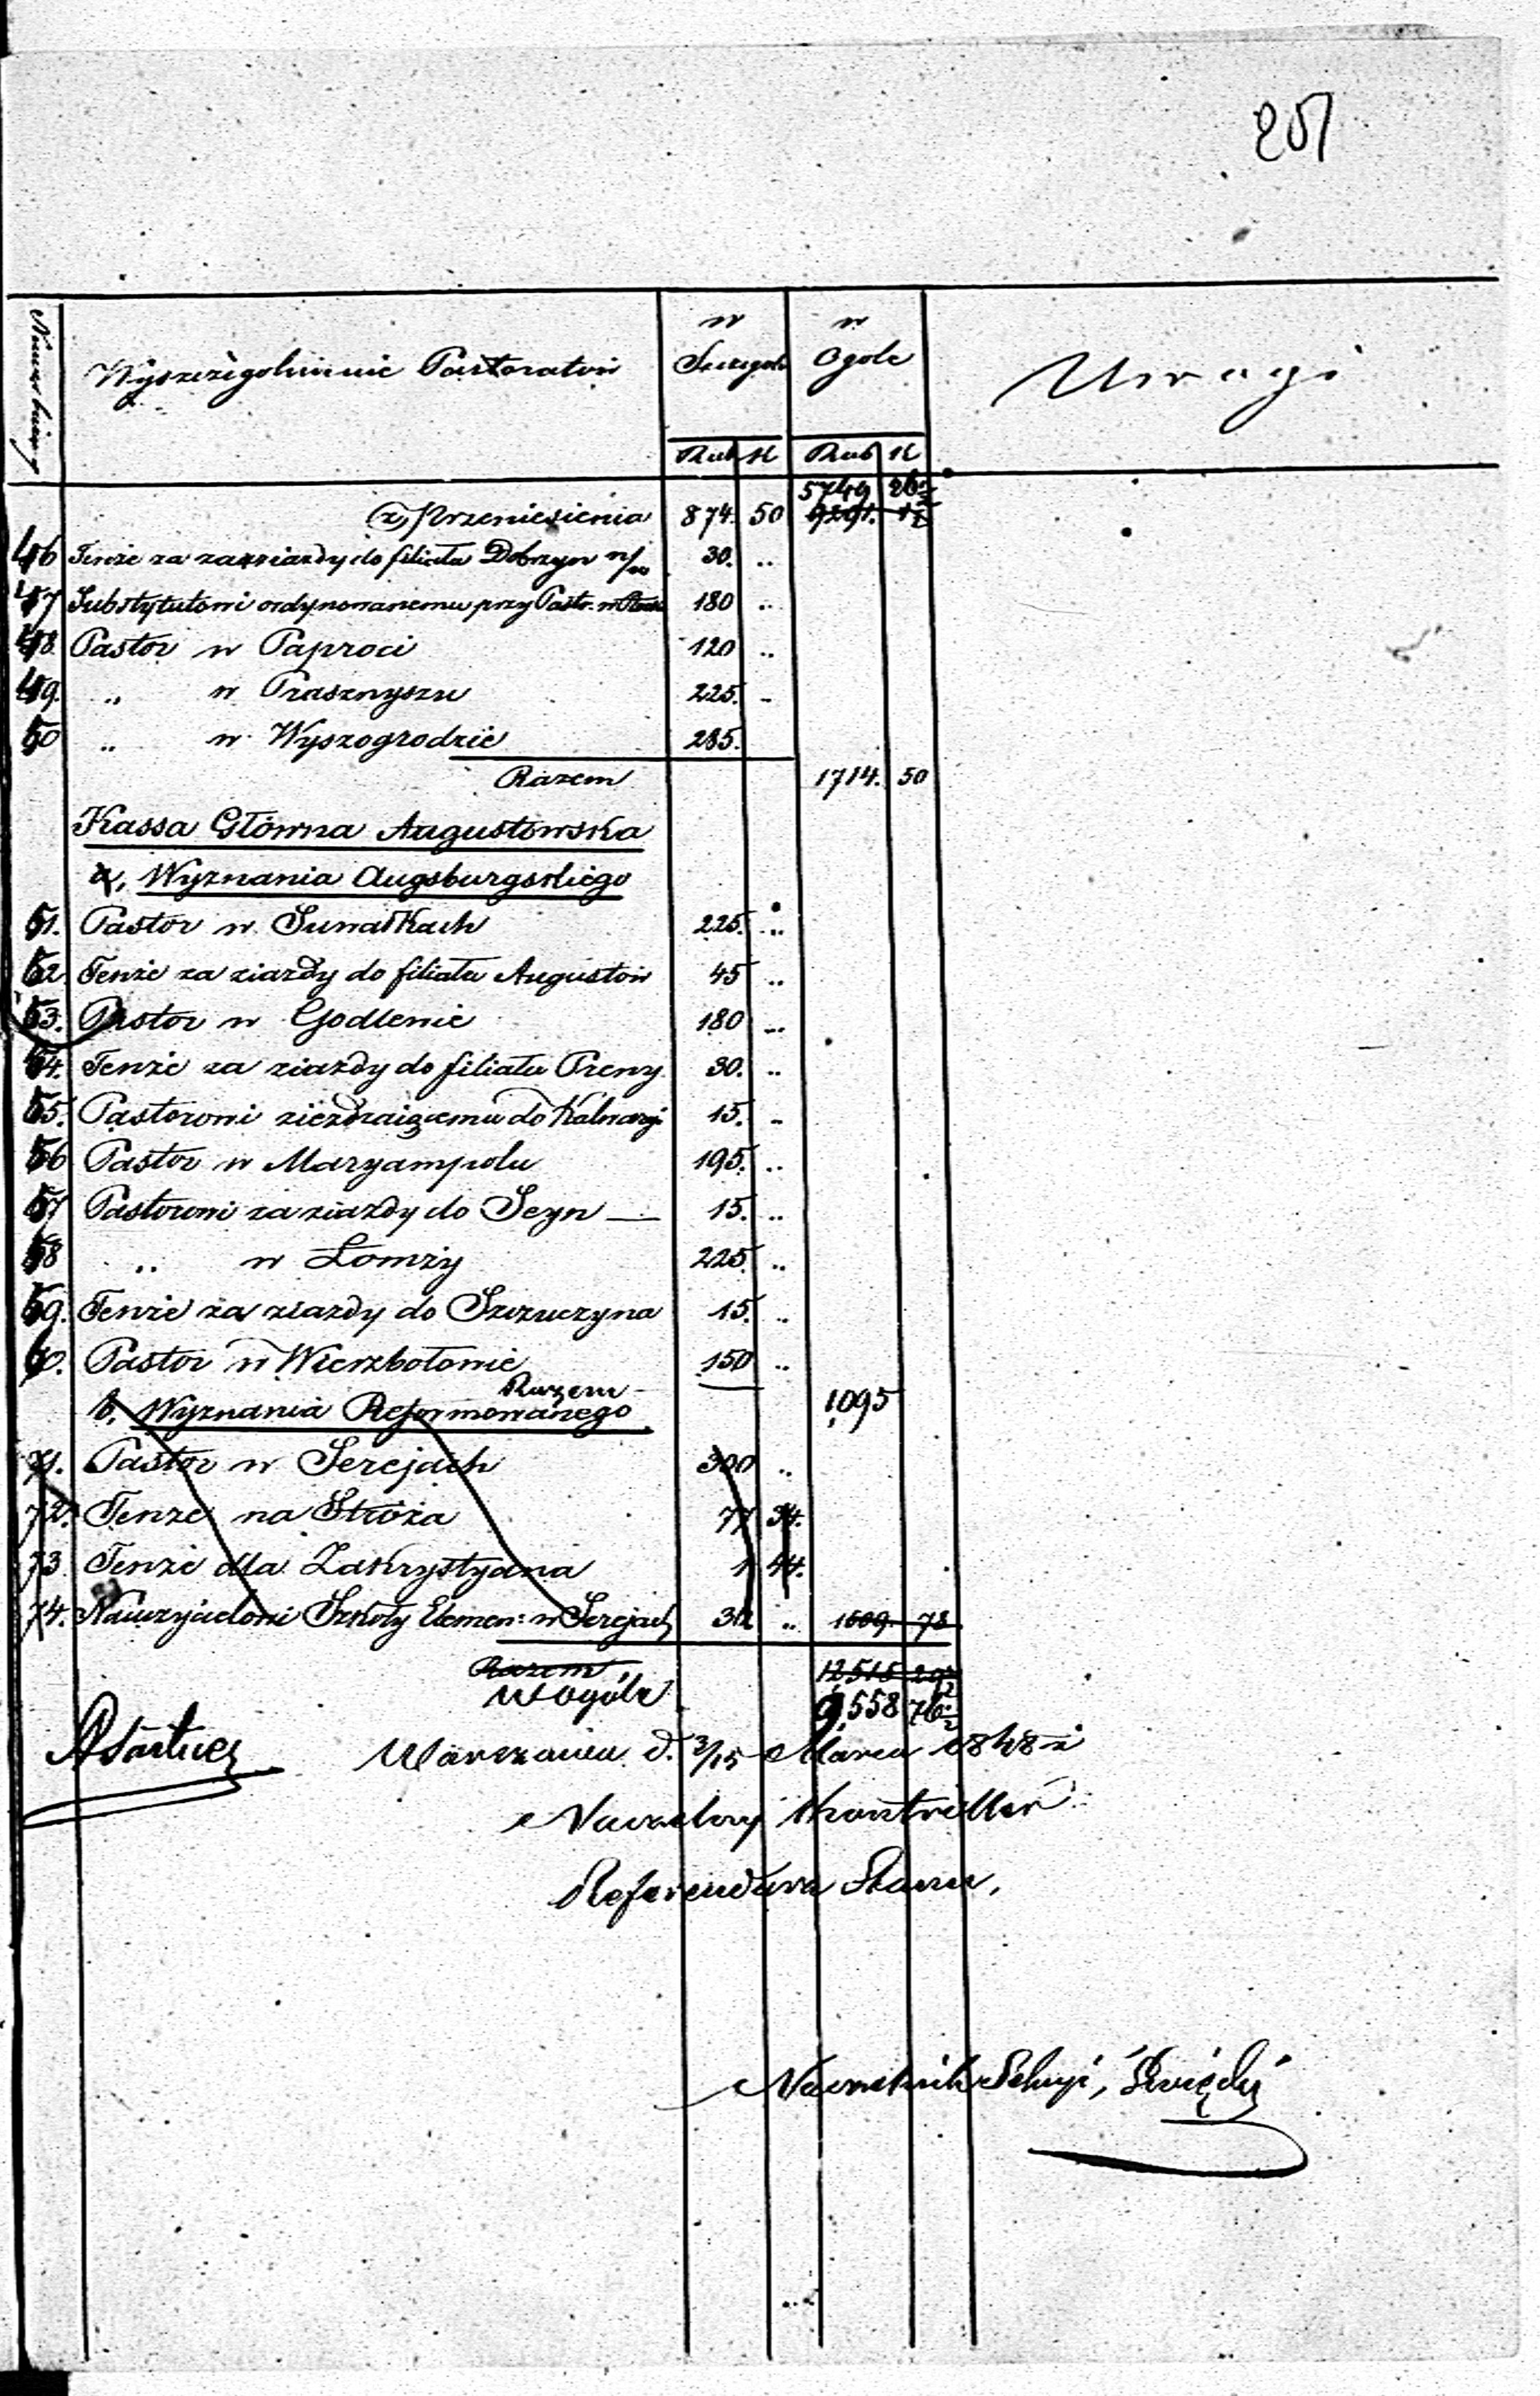 251
Numer bieżący Wyszczególnienie Pastoratów w Szczególe w Ogóle Uwagi
Rub K Rub K
5749 26½
(z) Przeniesienia 874. 50 9291.
46 Tenże za zazjazdy do filiału Dobrzyn n/w 30. "
47 Substytutowi ordynowanemu przy Past. w Płocku 180 "
48. Pastor w Paproci 120 "
49. " w Prasznyszu 225. "
50 " w Wyszogrodzie 285.
Razem 1714. 50
Kassa Główna Augustowska
a, Wyznania Augsburgskiego
51. Pastor w Suwałkach 225. "
52. Tenże za ziazdy do filiału Augustów 45 "
53. Pastor w Godlewie 180 "
54. Tenże za ziazdy do filiału Preny 30. "
55. Pastorowi zieżdzaiącemu do Kalwaryi 15. "
56 Pastor w Maryampolu 195. "
57 Pastorowi za ziazdy do Seyn — 15. "
58 " w Łomży 225. "
59. Tenże za ziazdy do Szczuczyna 15. "
60. Pastor w Wierzbołowie 150 "
Razem 1095
b, Wyznania Reformowanego
71. Pastor w Serejach 300 "
72. Tenże na Stróża 77 34.
73 Tenże dla Zakrystyana 1 44.
74. Nauczycielowi Szkoły Elemen: w Serejach 32 " 1509. 78
Razem 12515 29½
W ogóle 9,558 76½
Warszawa d. 3/15 Marca 1848 r
Naczelny Kontroller
Referendarz Stanu,
Naczelnik Sekcyi,